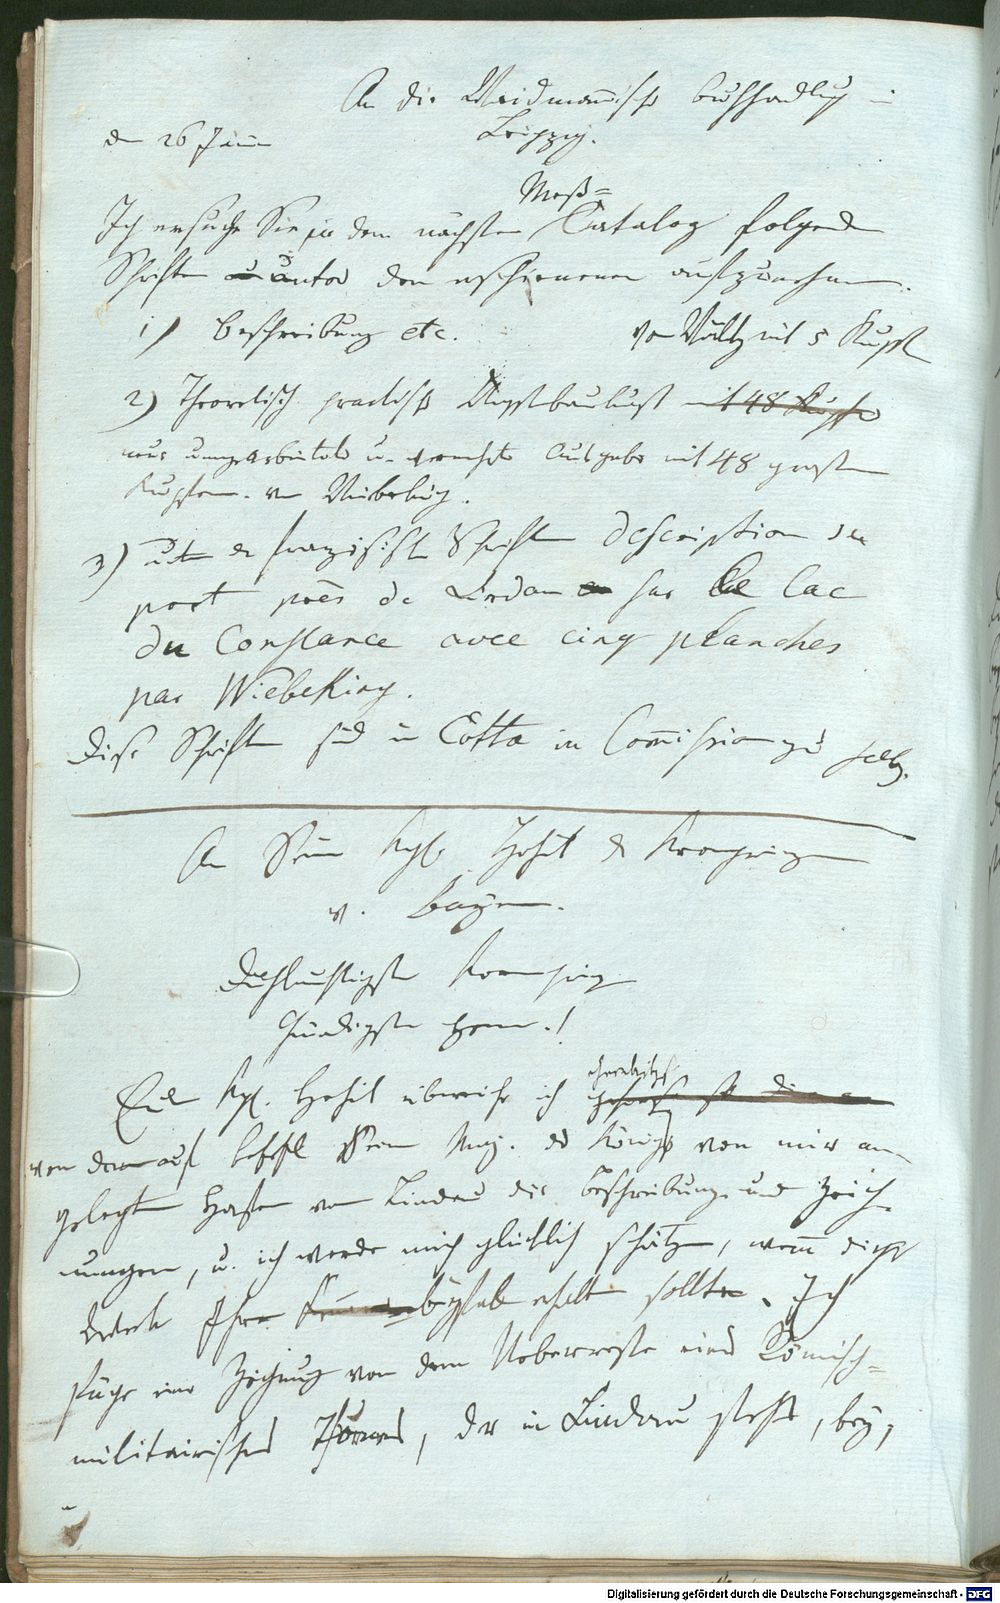 An die Weidmannische Buchhandlug in
Leipzig.
den 26 Juni
Meß=
Ich ersuche Sie in dem nächsten Catalog folgende
Schriften unter den erschienenen aufzunehmen.
1) Beschreibung etc. von mit 5 Kupf
2) Theoretisch practische Wasserbaukunst mit 48 Kupfer
neue umgearbeitete u. vermehrte Ausgabe mit 48 großen
Kupfern. von Wiebeking.
3) der französische Schriften description du
port près de Lindau sur le lac
du Constance avec cinq planches
par Wiebeking.
Diese Schriften sind in Cotta in Commission zu
An Seine Kgl. Hoheit den Kronprinzen
v. Bayern.
Durchlauchtigster Kronprinz
Gnädigster Herr!
Eur Kgl. Hoheit überreiche ich ehrerbietigst
von dem auf Befehl Seiner Maj. des Königs von mir an
gelegten Hafen von Lindau die Beschreibung und Zeich
nungen, u. ich werde mich glücklich schätzen, wenn dieses
Werk Ihren Beyfall erhalten sollte. Ich
füge eine Zeichnung von dem Ueberreste eines Römisch=
militairischen Thurmes, der in Lindau steht, bey,
Digitalisierung gefördert durch die Deutsche Forschungsgemeinschaft - DFG